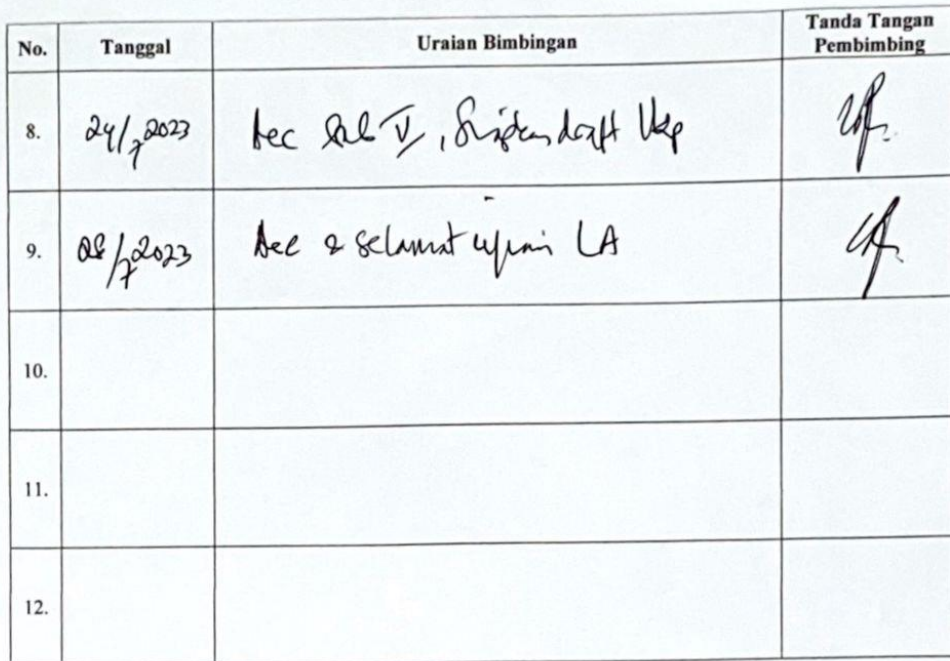 No. Tanggal Uraian Bimbingan Tanda Tangan Pembimbing
8. 24/7 2023 Acc Bab V, Siapkan draft Ukp
9. 28/7 2023 Acc & selamat ujian LA
10.
11.
12.